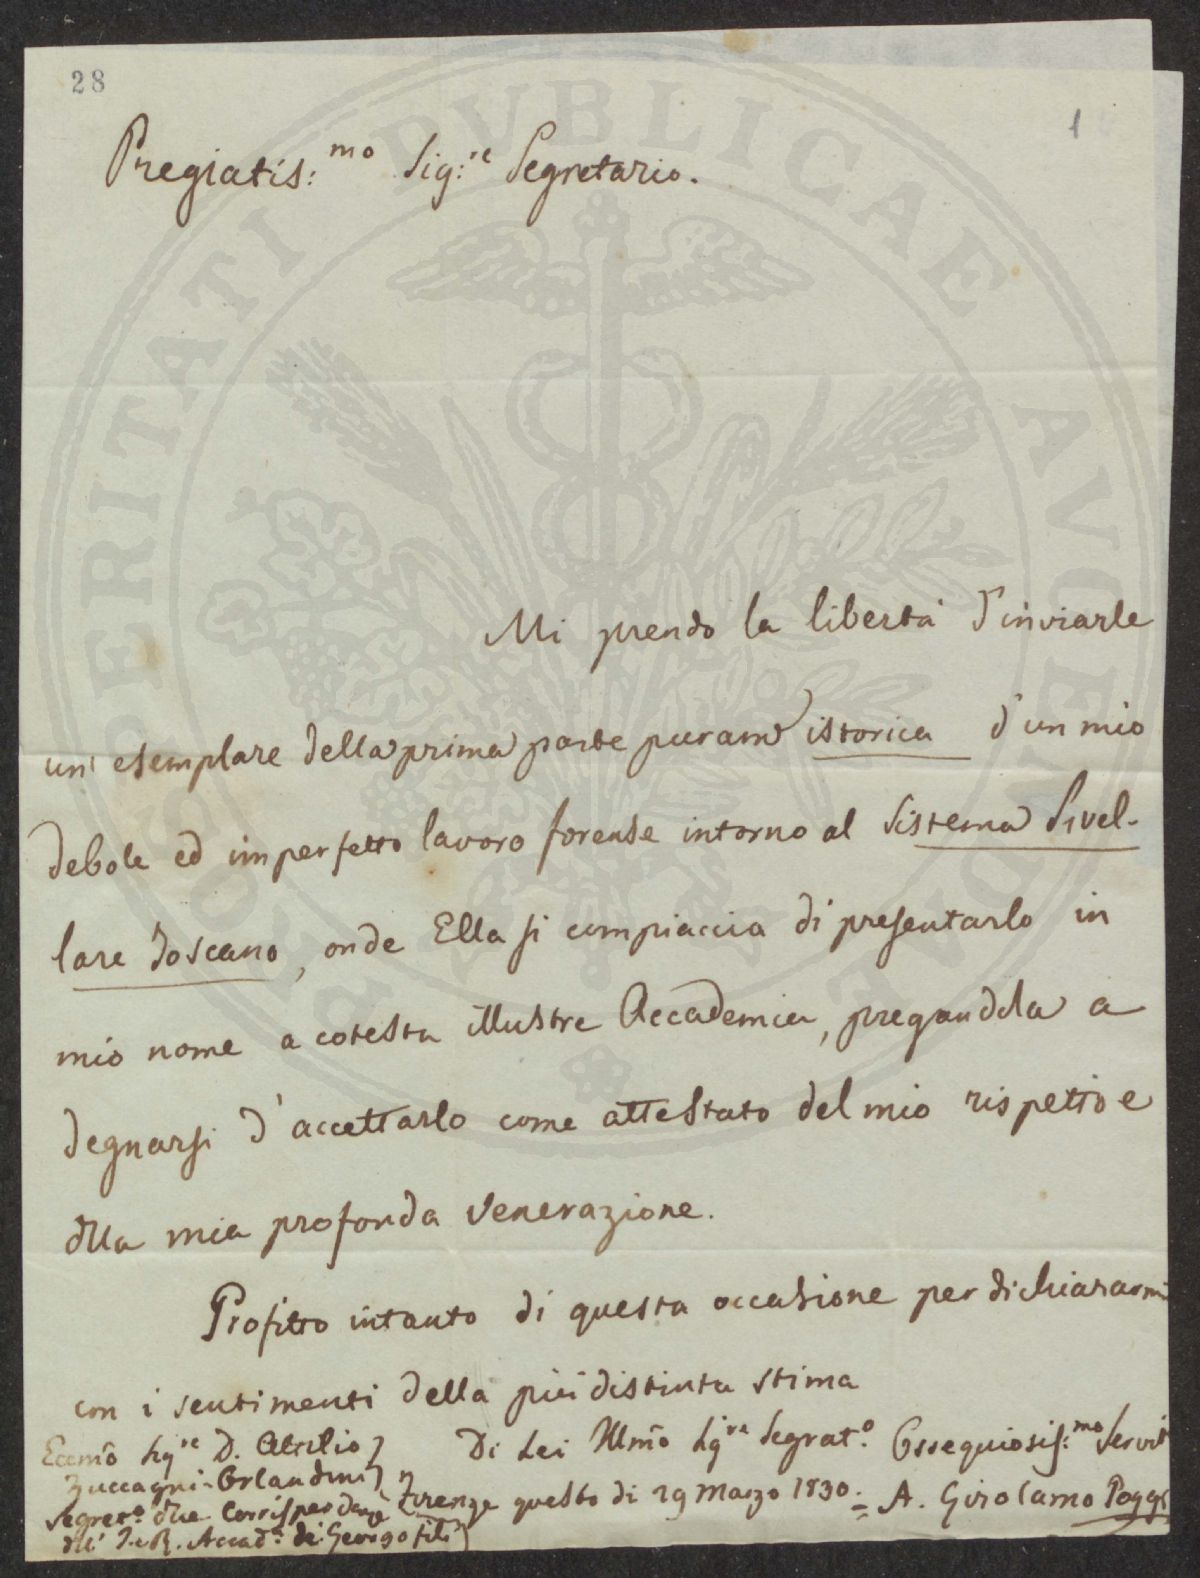 28
1
Pregiatis:mo Sig:re Segretario.
Mi prendo la libertà d'inviarle
un' esemplare della prima parte puram.e istorica d'un mio
debole ed imperfetto lavoro forense intorno al Sistema Livel-
lare Toscano, onde Ella si compiaccia di presentarlo in
mio nome a cotesta illustre Accademia, pregandola a
degnarsi d'accettarlo come attestato del mio rispetto e
della mia profonda venerazione.
Profitto intanto di questa occasione per dichiararmi
con i sentimenti della più distinta stima
Di Lei Illmo Sig.re Segrat.o Ossequiosis:mo Servit
Firenze questo dì 29 Marzo 1830. = A. Girolamo Poggi
Eccmo Sig.re D. Attilio
Zuccagni-Orlandini
Segret.o delle Corrispondenze
dell' I. e R. Accad.a dei Georgofili
PROSPERITATI PUBLICAE AUGENDAE